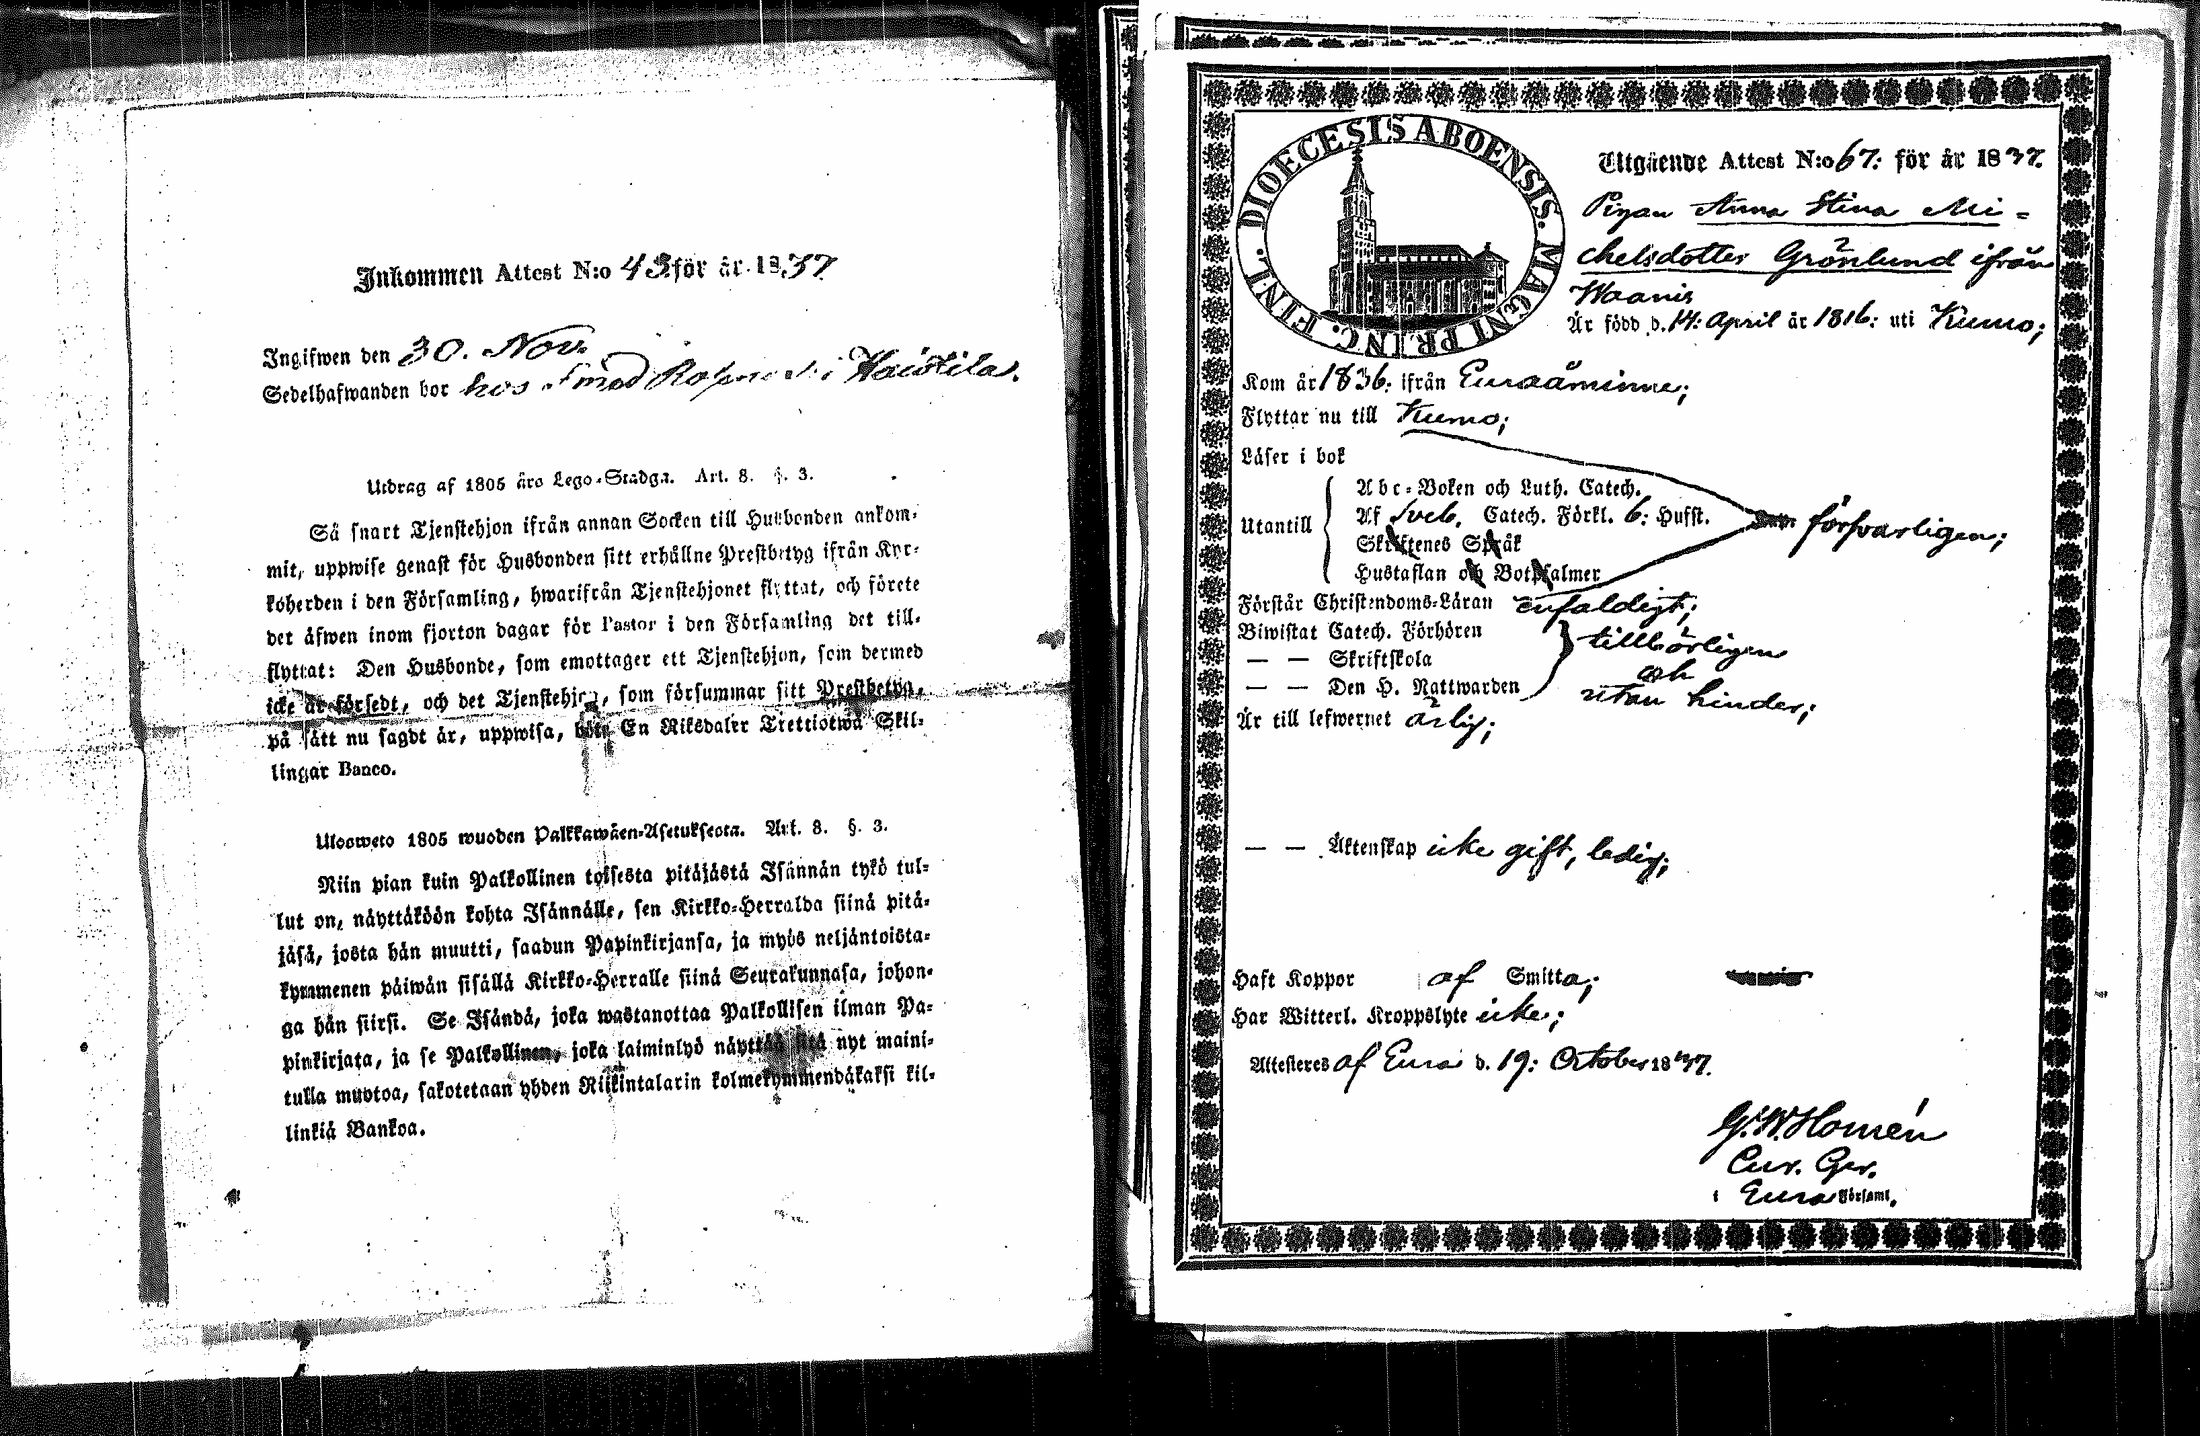 Inkommen Attest N:o 43. för år 1837
Ingifwen den 30. Nov.
Sedelhafwanden bor hos Smed i Haistila.
Utdrag af 1805 års Lego-Stadga. Art. 8. §. 3.
Så snart Tjenstehjon ifrån annan Socken till Husbonden ankom-
mit, uppwise genast för Husbonden sitt erhållne Prestbetyg ifrån Kyr-
koherden i den Församling, hwarifrån Tjenstehjonet flyttat, och förete
det äfwen inom fjorton dagar för Pastor i den Församling det till-
flyttat: Den Husbonde, som emottager ett Tjenstehjon, som dermed
icke är försedt, och det Tjenstehjon, som försummar sitt Prestbetyg,
på sätt nu sagdt är, uppwisa, böte En Riksdaler Trettiotwå Skil-
lingar Banco.
Ulosweto 1805 wuoden Palkkawäen-Asetuksesta. Art. 8. §. 3.
Niin pian kuin Palkollinen toisesta pitäjästä Isännän tykö tul-
lut on, näyttäköön kohta Isännälle, sen Kirkko-Herralda siinä pitä-
jäsä, josta hän muutti, saadun Papinkirjansa, ja myös neljäntoista-
kymmenen päiwän sisällä Kirkko-Herralle siinä Seurakunnasa, johon-
ga hän siirsi. Se Isändä, joka wastanottaa Palkollisen ilman Pa-
pinkirjata, ja se Palkollinen, joka laiminlyö näyttää sitä nyt maini-
tulla muotoa, sakotetaan yhden Riikintalarin kolmekymmendäkaksi kil-
linkiä Bankoa.
DIOECESIS ABOENSIS. MAGNI PRINC. FINL.
Utgående Attest N:o 67: för år 1837.
Pigan Anna Stina Mi=
chelsdotter Grönlund ifrån
Waanis
Är född d. 14: April år 1816: uti Kumo;
Kom år 1836: ifrån Euraåminne;
Flyttar nu till Kumo;
Läser i bok
Utantill
Abc-Boken och Luth. Catech.
Af Sveb. Catech. Förkl. 6: Hufst.
Skriftenes Språk
Hustaflan och Botpsalmer
försvarligen;
Förstår Christendoms-Läran enfaldigt;
Biwistat Catech. Förhören
— — Skriftskola
— — Den H. Nattwarden
tillbörligen
och
utan hinder;
Är till lefwernet ärlig;
— — Äktenskap icke gift, ledig;
Haft Koppor af Smitta;
Har Witterl. Kroppslyte icke;
Attesteres af Eura d. 19: October 1837.
G. W. Homén
Cur. Ger.
i Eura Församl.